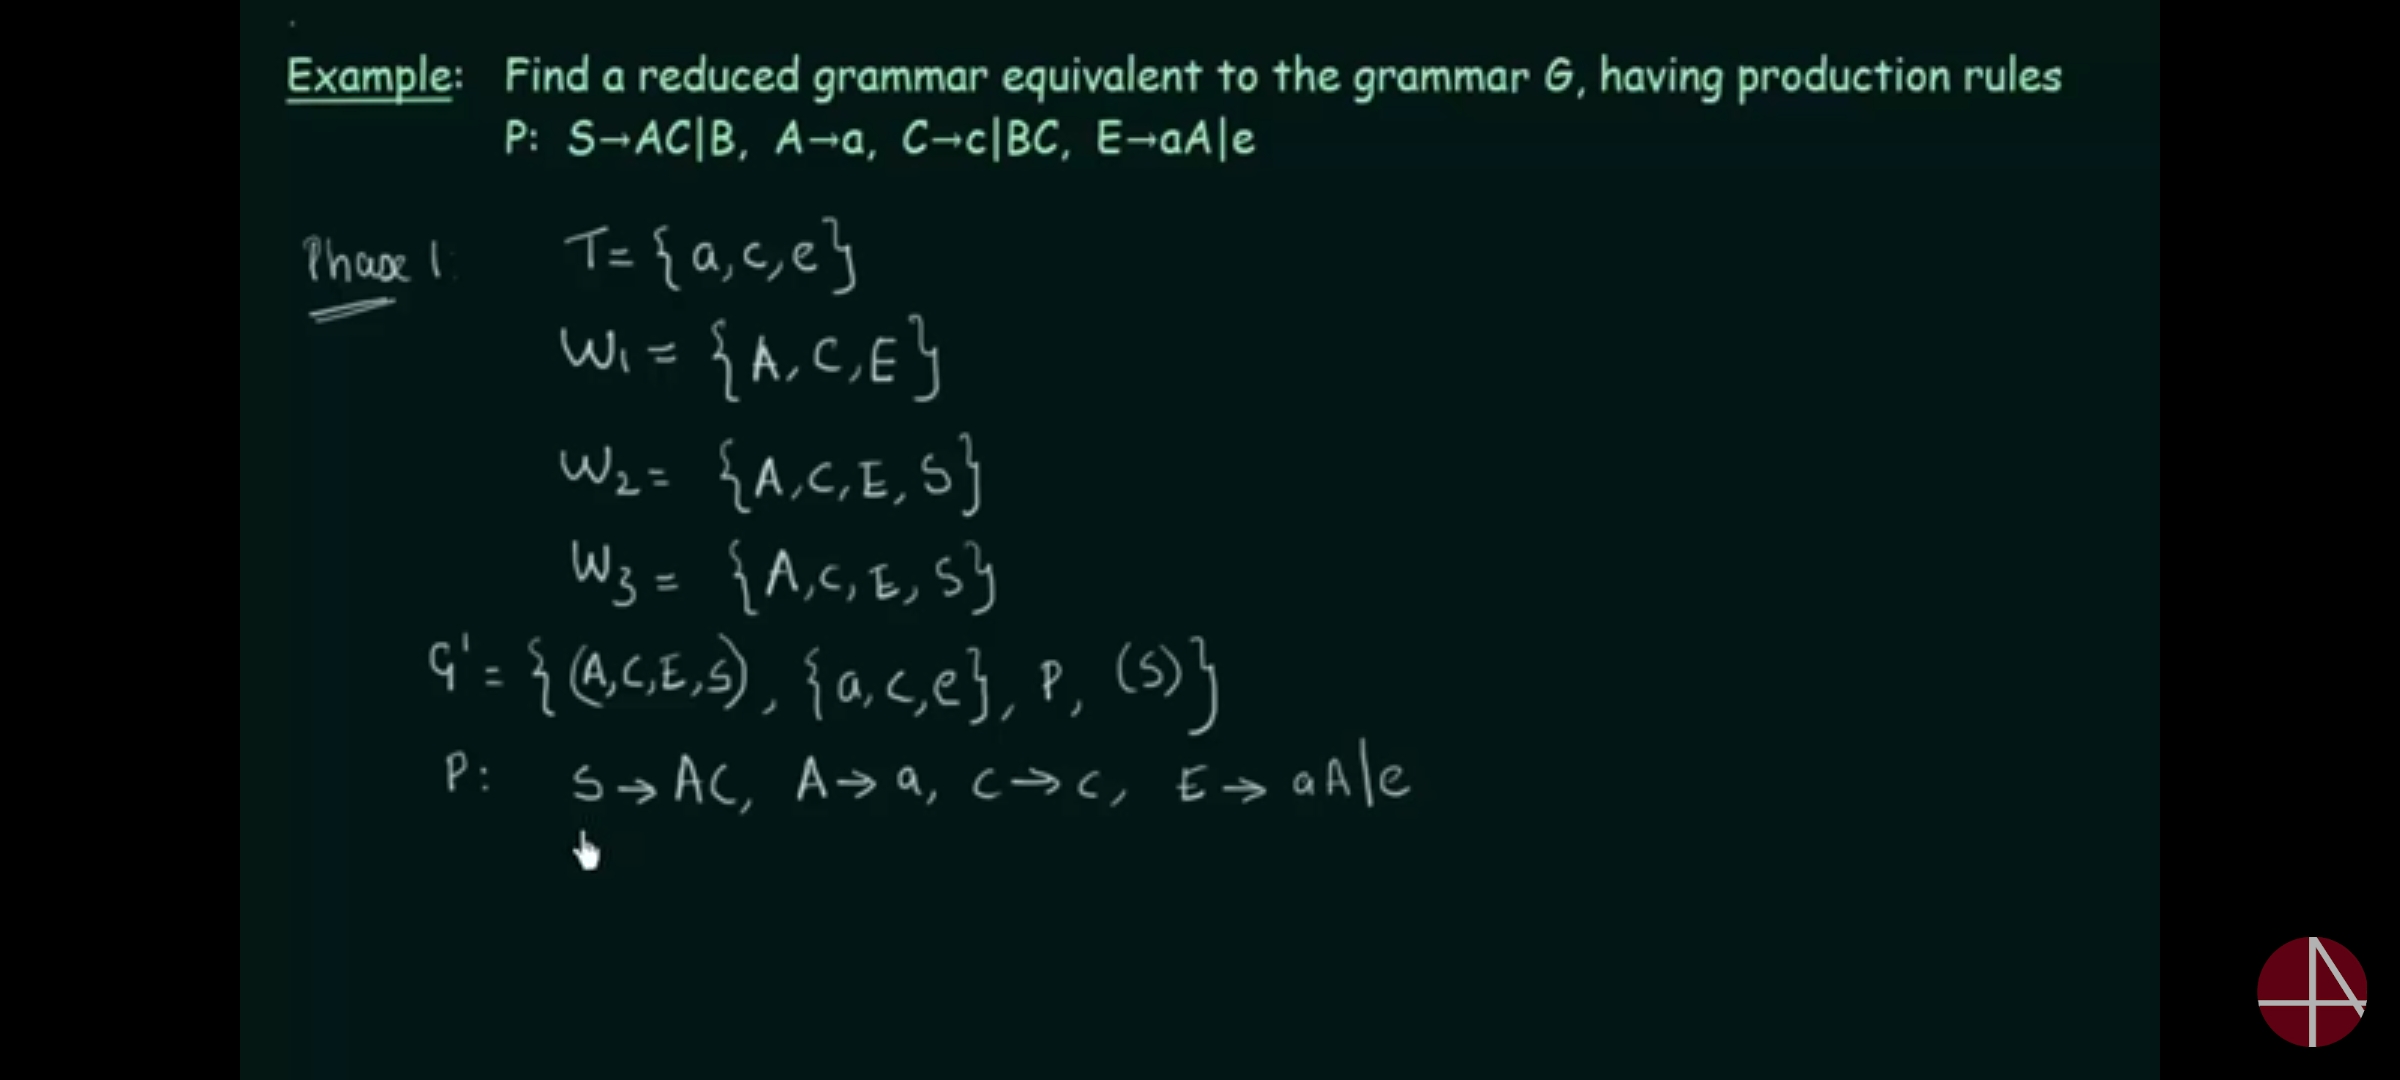 Example: Find a reduced grammar equivalent to the grammar G, having production rules
P: S→AC|B, A→a, C→c|BC, E→aA|e
Phase 1: T= {a,c,e}
W₁ = {A,C,E}
W₂= {A,C,E,S}
W₃ = {A,C,E,S}
G' = {(A,C,E,S), {a,c,e}, P, (S)}
P: S→AC, A→a, C→c, E→aA|e